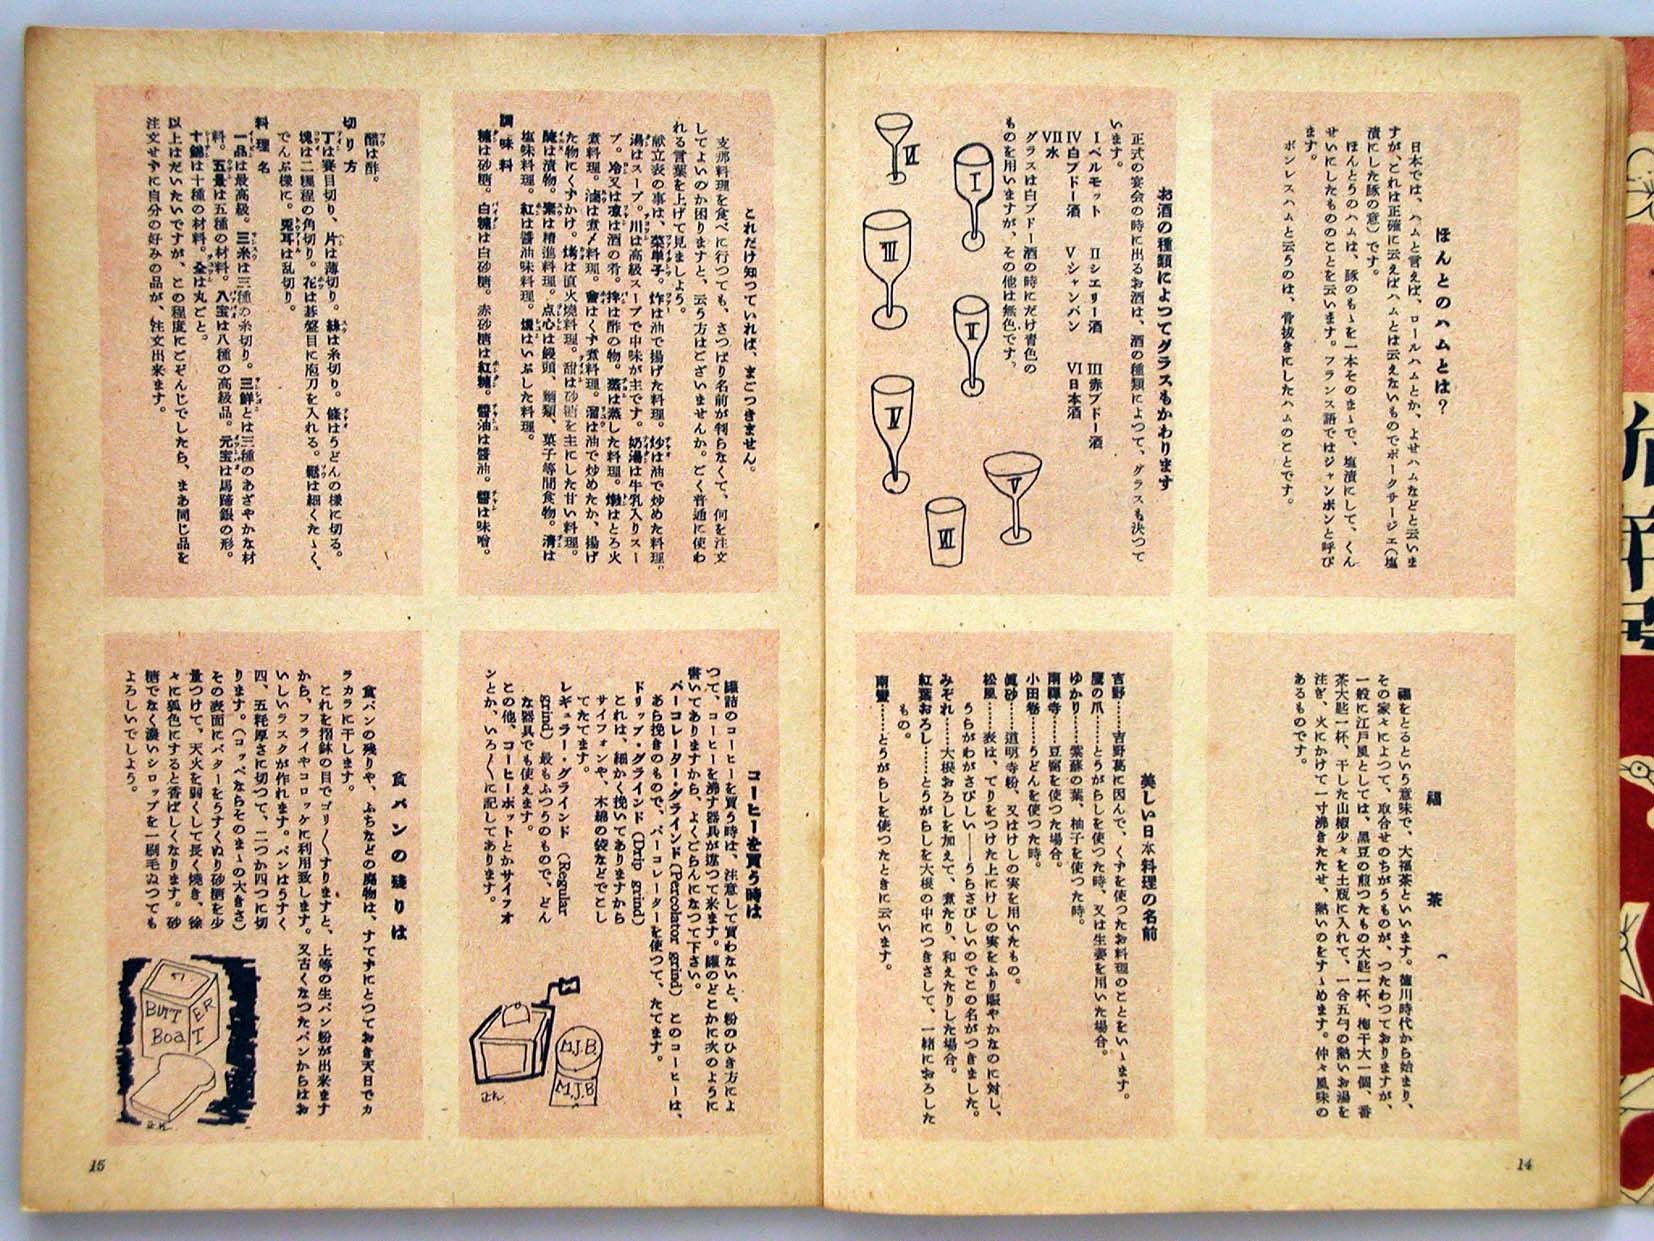 ほんとのハムとは?
日本では、ハムと言えば、ロールハムとか、よせハムなどと云いま
すが、これは正確に云えばハムとは云えないものでポークサージェ(塩
漬にした豚の意)です。
ほんとうのハムは、豚のもゝを一本そのまゝで、塩漬にして、くん
せいにしたもののことを云います。フランス語ではジャンボンと呼び
ます。
ボンレスハムと云うのは、骨抜きにしたハムのことです。
お酒の種類によつてグラスもかわります
正式の宴会の時に出るお酒は、酒の種類によつて、グラスも決つて
います。
Ⅰベルモット Ⅱシエリー酒 Ⅲ赤ブドー酒
Ⅳ白ブドー酒 Ⅴシャンパン Ⅵ日本酒
Ⅶ水
グラスは白ブドー酒の時にだけ青色の
ものを用いますが、その他は無色です。
Ⅵ
Ⅰ
Ⅲ
Ⅱ
Ⅳ
Ⅴ
Ⅶ
福茶
福をとるという意味で、大福茶といいます。徳川時代から始まり、
その家々によつて、取合せのちがうものが、つたわつておりますが、
一般に江戸風としては、黒豆の煎つたもの大匙一杯、梅干大一個、番
茶大匙一杯、干した山椒少々を土瓶に入れて、一合五勺の熱いお湯を
注ぎ、火にかけて一寸沸きたたせ、熱いのをすゝめます。仲々風味の
あるものです。
美しい日本料理の名前
吉野……吉野葛に因んで、くずを使つたお料理のことをいゝます。
鷹の爪……とうがらしを使つた時、又は生姜を用いた場合。
ゆかり……紫蘇の葉、柚子を使つた時。
南禅寺……豆腐を使つた場合。
小田巻……うどんを使つた時。
眞砂……道明寺粉、又はけしの実を用いたもの。
松風……表は、てりをつけた上にけしの実をふり賑やかなのに対し、
うらがわがさびしい——うらさびしいのでこの名がつきました。
みぞれ……大根おろしを加えて、煮たり、和えたりした場合。
紅葉おろし……とうがらしを大根の中につきさして、一緒におろした
もの。
南蛮……とうがらしを使つたときに云います。
14
これだけ知つていれば、まごつきません。
支那料理を食べに行つても、さつぱり名前が判らなくて、何を注文
してよいのか困りますと、云う方はございませんか。ごく普通に使わ
れる言葉を上げて見ましよう。
献立表の事は、菜単子。炸は油で揚げた料理。炒は油で炒めた料理。
湯はスープ。川は高級スープで中味が主です。奶湯は牛乳入りスー
プ。冷又は凍は酒の肴。拌は酢の物。蒸は蒸した料理。燉はとろ火
煮料理。滷は煮〆料理。會はくず煮料理。溜は油で炒めたか、揚げ
た物にくずかけ。烤は直火焼料理。甜は砂糖を主にした甘い料理。
醃は漬物。素は精進料理。点心は饅頭、麺類、菓子等間食物。清は
塩味料理。紅は醤油味料理。燻はいぶした料理。
調味料
糖は砂糖。白糖は白砂糖。赤砂糖は紅糖。醤油は醤油。醬は味噌。
醋は酢。
切り方
丁は賽目切り、片は薄切り。絲は糸切り。條はうどんの様に切る。
塊は二糎程の角切り。花は碁盤目に庖刀を入れる。鬆は細くたゝく、
でんぶ様に。兎耳は乱切り。
料理名
一品は最高級。三糸は三種の糸切り。三鮮とは三種のあざやかな材
料。五景は五種の材料。八宝は八種の高級品。元宝は馬蹄銀の形。
十錦は十種の材料。全は丸ごと。
以上はだいたいですが、この程度にごぞんじでしたら、まあ同じ品を
注文せずに自分の好みの品が、注文出来ます。
コーヒーを買う時は
罐詰のコーヒーを買う時は、注意して買わないと、粉のひき方によ
つて、コーヒーを沸す器具が違つて来ます。罐のどこかに次のように
書いてありますから、よくごらんになつて下さい。
パーコレーター・グラインド(Percolator grind) このコーヒーは、
あら挽きのもので、パーコレーターを使つて、たてます。
ドリップ・グラインド(Drip grind)
これは、細かく挽いてありますから
サイフォンや、木綿の袋などでこし
てたてます。
レギュラー・グラインド (Regular
grind) 最もふつうのもので、どん
な器具でも使えます。
この他、コーヒーポットとかサイフォ
ンとか、いろ〳〵に記してあります。
M.J.B.
M.J.B
食パンの残りは
食パンの残りや、ふちなどの廃物は、すてずにとつておき天日でカ
ラカラに干します。
これを摺鉢の目でゴリ〳〵すりますと、上等の生パン粉が出来ます
から、フライやコロッケに利用致します。又古くなつたパンからはお
いしいラスクが作れます。パンはうすく
四、五粍厚さに切つて、二つか四つに切
ります。(コッペならそのまゝの大きさ)
その表面にバターをうすくぬり砂糖を少
量つけて、天火を弱くして長く焼き、徐
々に狐色にすると香ばしくなります。砂
糖でなく濃いシロップを一刷毛ぬつても
よろしいでしよう。
BUTTER
BoaT
15